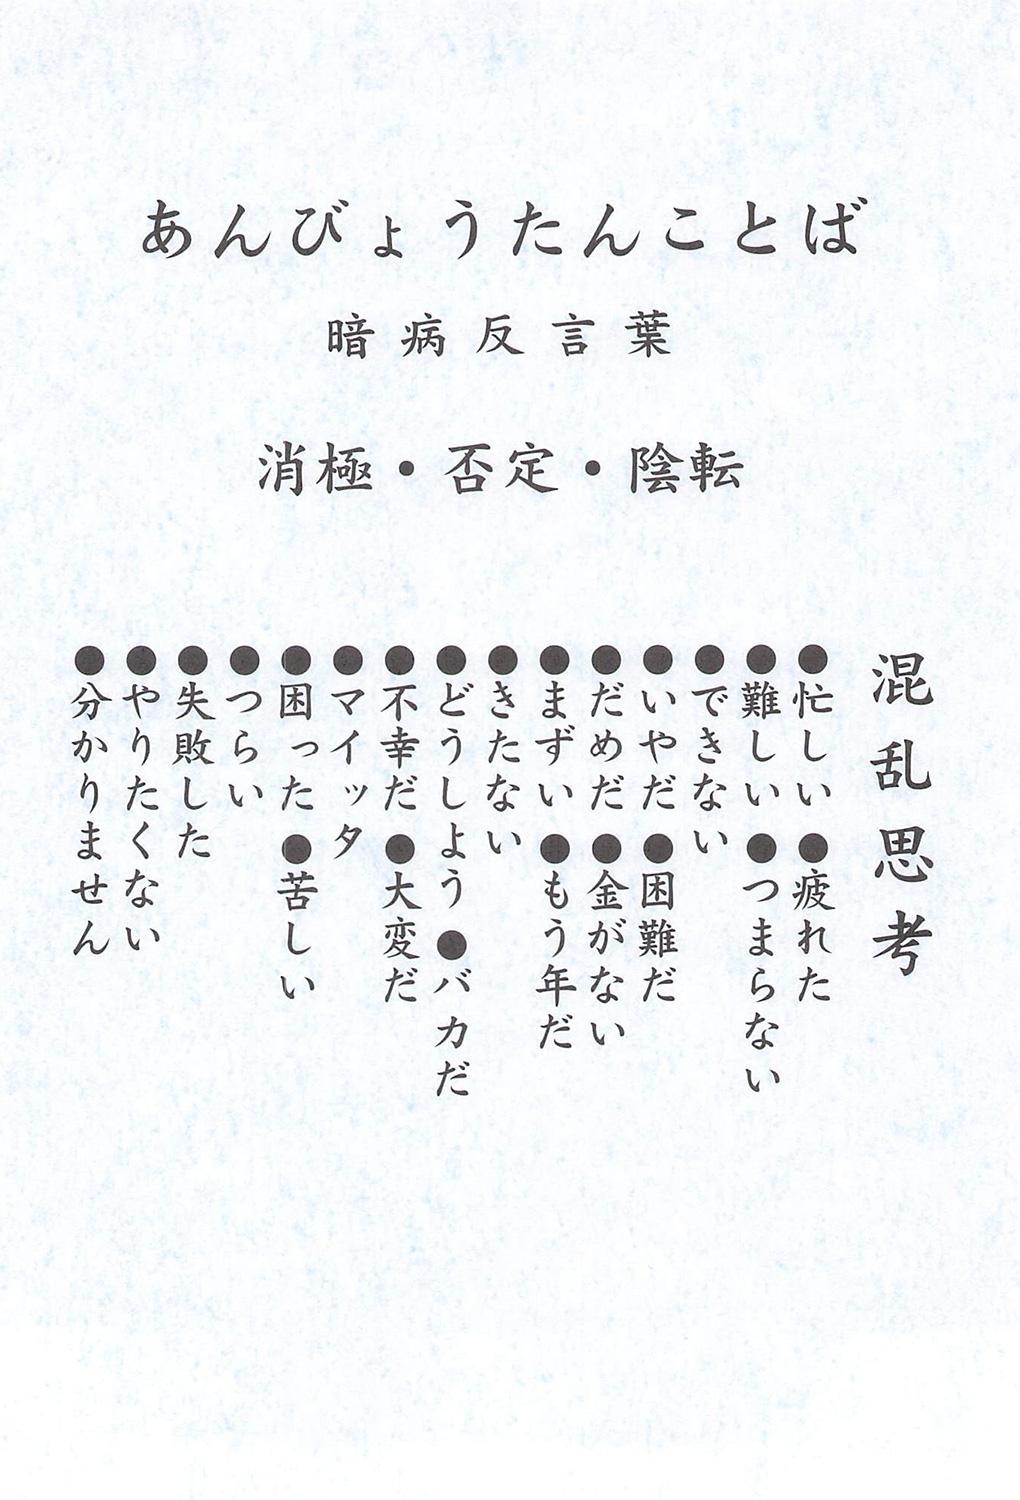 あんびょうたんことば
暗病反言葉
消極・否定・陰転
混乱思考
●忙しい●疲れた
●難しい●つまらない
●できない
●いやだ●困難だ
●だめだ●金がない
●まずい●もう年だ
●きたない
●どうしよう●バカだ
●不幸だ●大変だ
●マイッタ
●困った●苦しい
●つらい
●失敗した
●やりたくない
●分かりません